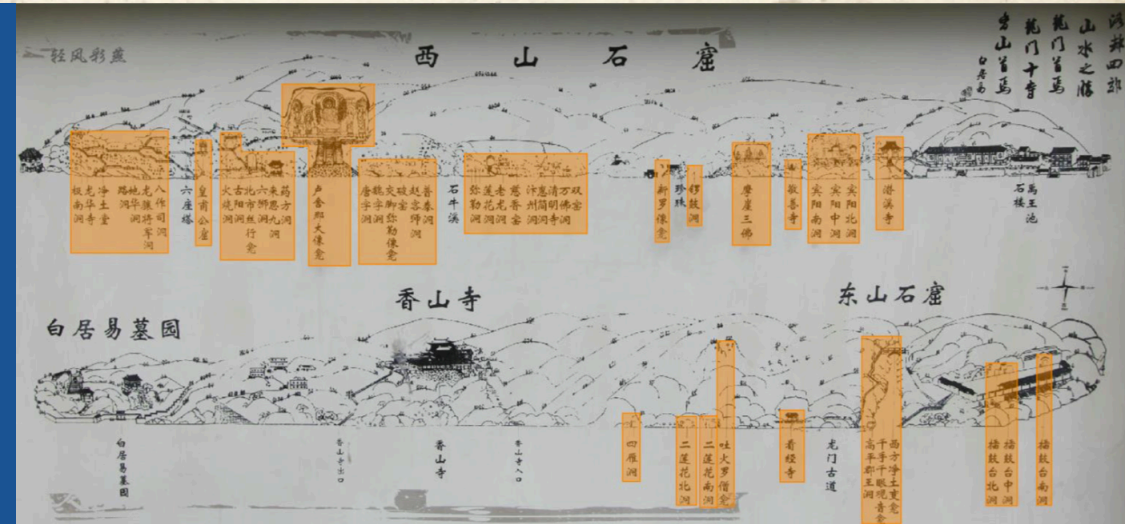 轻风彩燕
西山石窟
洛都四郊
山水之胜
龙门首焉
龙门十寺
香山首焉
白居易
极南洞
龙华寺
净土堂
路洞
地华洞
龙骧将军洞
八作司洞
六座塔
皇甫公窟
火烧洞
古阳洞
北市丝行龛
六狮洞
来思九洞
药方洞
卢舍那大像龛
唐字洞
魏字洞
交脚弥勒像龛
破窑
赵客师洞
普泰洞
石牛溪
弥勒洞
莲花洞
老龙洞
慈善窑
汴州洞
惠简洞
清明寺
万佛洞
双窑
新罗像龛
珍珠
锣鼓洞
摩崖三佛
敬善寺
宾阳南洞
宾阳中洞
宾阳北洞
潜溪寺
石楼
禹王池
香山寺
东山石窟
白居易墓园
白居易墓园
香山寺出口
香山寺
香山寺入口
四雁洞
二莲花北洞
二莲花南洞
吐火罗僧龛
看经寺
龙门古道
高平郡王洞
千手千眼观音龛
西方净土变龛
擂鼓台北洞
擂鼓台中洞
擂鼓台南洞